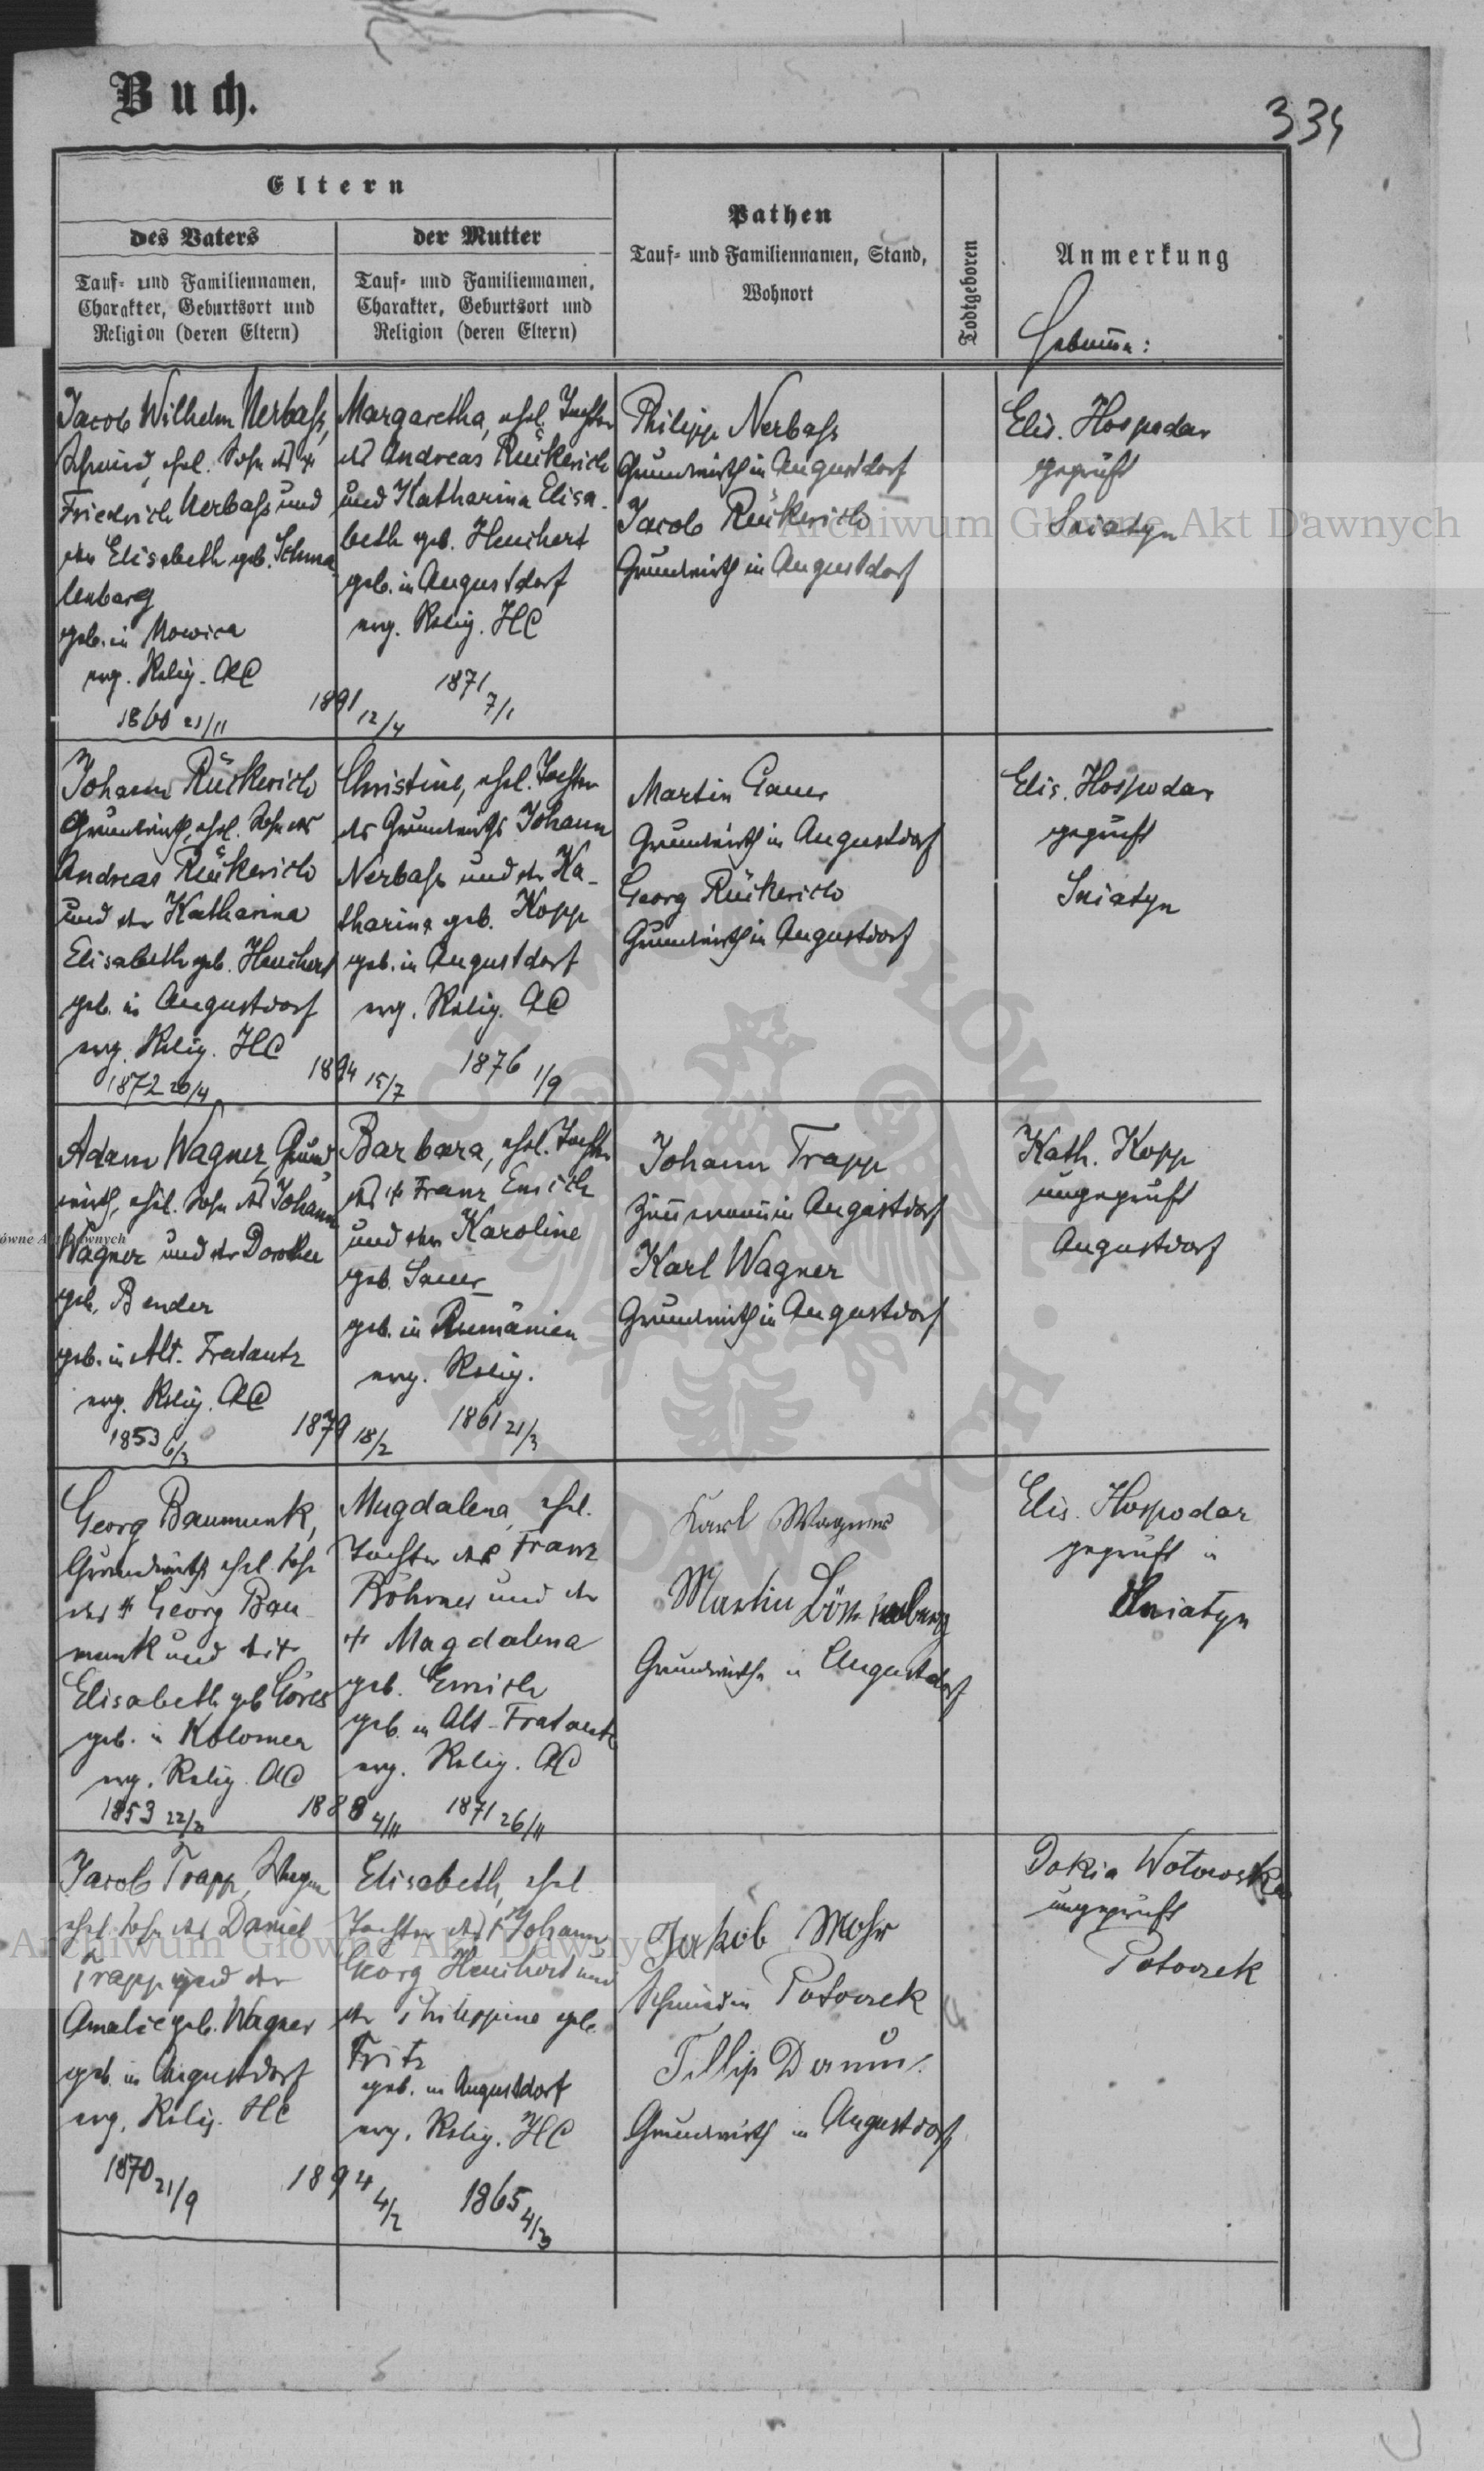 Buch.
334
Eltern
des Vaters
der Mutter
Tauf- und Familiennamen,
Charakter, Geburtsort und
Religion (deren Eltern)
Tauf- und Familiennamen,
Charakter, Geburtsort und
Religion (deren Eltern)
Pathen
Tauf- und Familiennamen, Stand,
Wohnort
Todtgeboren
Anmerkung
Hebamme:
Jacob Wilhelm Nerbass,
Schmied, ehel. Sohn des +
Friedrich Nerbass und
der Elisabeth geb. Schma-
lenberg
geb. in Mowica
evg. Relig. AC
1860 21/11
1891 12/4
Margaretha, ehel. Tochter
des Andreas Rückerich
und Katharina Elisa-
beth geb. Heuchert
geb. in Augustdorf
evg. Relig. HC
1871 7/1
Philipp Nerbass
Grundwirth in Augustdorf
Jacob Rückerich
Grundwirth in Augustdorf
Elis. Hospodar
geprüft
Sniatyn
Johann Rückerich
Grundwirth, ehel. Sohn des
Andreas Rückerich
und der Katharina
Elisabeth geb. Heuchert
geb. in Augustdorf
evg. Relig. HC
1872 20/4
1894 15/7
Christine, ehel. Tochter
des Grundwirths Johann
Nerbass und der Ka-
tharina geb. Kopp
geb. in Augustdorf
evg. Relig. AC
1876 1/9
Martin
Grundwirth in Augustdorf
Georg Rückerich
Grundwirth in Augustdorf
Elis. Hospodar
geprüft
Sniatyn
Adam Wagner, Grund-
wirth, ehel. Sohn des Johann
Wagner und der Dorothea
geb. Bender
geb. in Alt-Fratautz
evg. Relig. AC
1853 6/3
1879 18/2
Barbara, ehel. Tochter
des + Franz Emich
und der Karoline
geb. Sauer
geb. in Rumänien
evg. Relig.
1861 21/3
Johann Trapp
Zimmermann in Augustdorf
Karl Wagner
Grundwirth in Augustdorf
Kath. Kopp
ungeprüft
Augustdorf
Georg Baumunk,
Grundwirth, ehel. Sohn
des + Georg Bau-
munk und der +
Elisabeth geb. Göres
geb. in Kolomea
evg. Relig. AC
1853
1888 4/11
Magdalena, ehel.
Tochter des Franz
Röhmer und der
+ Magdalena
geb. Emich
geb. in Alt-Fratautz
evg. Relig. AC
1871 26/11
Karl Wagner
Martin
Grundwirthe in Augustdorf
Elis. Hospodar
geprüft in
Sniatyn
Jacob Trapp, Wagner
ehel. Sohn des Daniel
Trapp und der
Amalie geb. Wagner
geb. in Augustdorf
evg. Relig. HC
1870 21/9
1894 4/2
Elisabeth, ehel.
Tochter des + Johann
Georg Heuchert und
der Philippine geb.
Fritz
geb. in Augustdorf
evg. Relig. HC
1865 4/3
Jakob Mohr
Schmied in Potoczek
Fillip Damm
Grundwirth in Augustdorf
Dokia
ungeprüft
Potoczek
Archiwum Główne Akt Dawnych